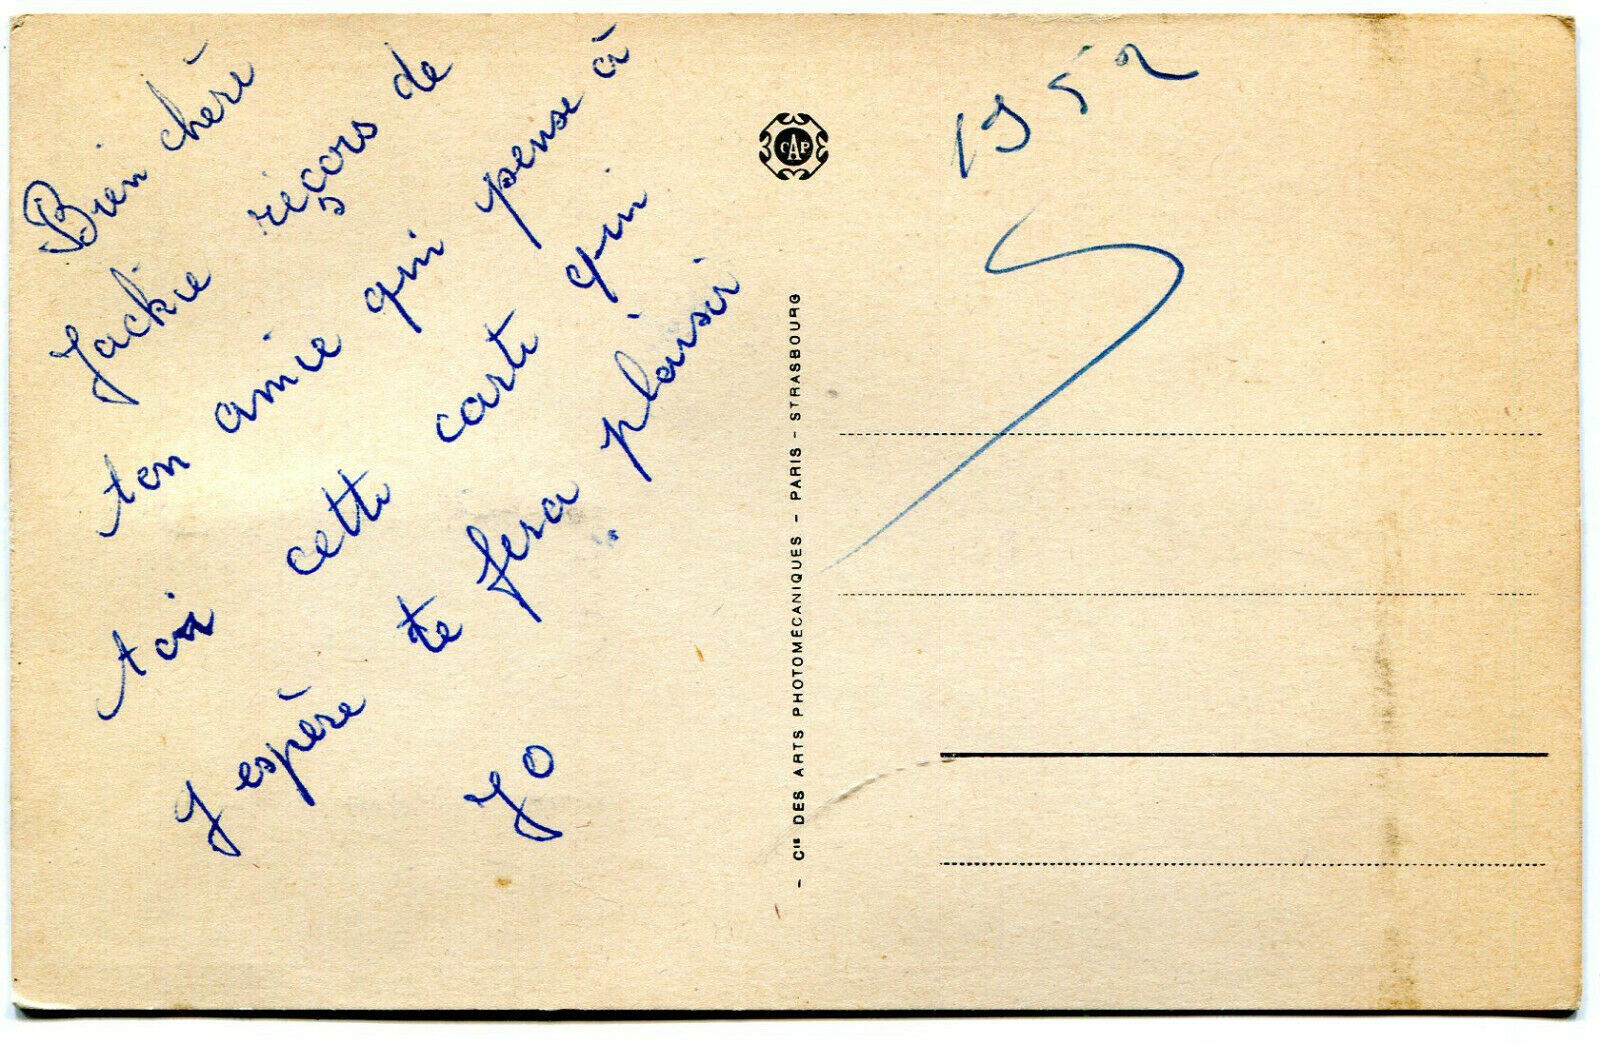 Bien chère
Jackie réçois de
ton amie qui pense à
toi cette carte qui
J espère te fera plaisir
Yo
CAP
- Cie DES ARTS PHOTOMECANIQUES - PARIS - STRASBOURG
1952